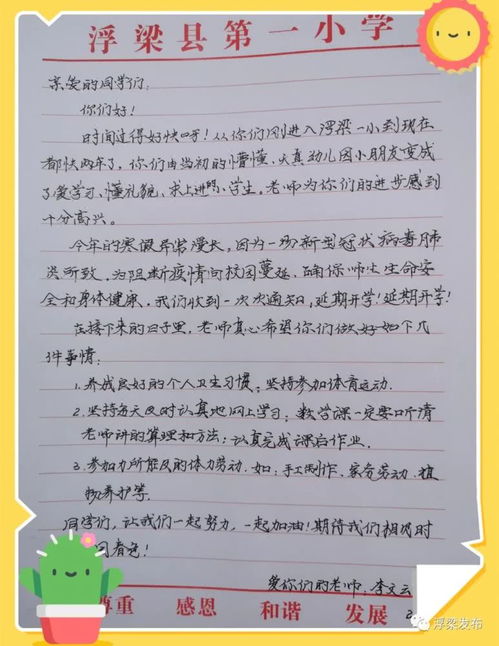 浮梁县第一小学
亲爱的同学们:
你们好!
时间过得好快呀!从你们刚进入浮梁一小到现在
都快两年了,你们由当初的懵懂、天真幼儿园小朋友变成
了爱学习、懂礼貌、求上进的小学生。老师为你们的进步感到
十分高兴。
今年的寒假异常漫长,因为一场新型冠状病毒肺
炎所致,为阻断疫情向校园蔓延,确保师生生命安
全和身体健康,我们收到一次次通知,延期开学!延期开学!
在接下来的日子里,老师真心希望你们做好如下几
件事情:
1.养成良好的个人卫生习惯;坚持参加体育运动.
2.坚持每天及时认真地网上学习;数学课一定要听清
老师讲的算理和方法;认真完成课后作业.
3.参加力所能及的体力劳动.如:手工制作,家务劳动,植
物养护等.
同学们,让我们一起努力,一起加油!期待我们相见时
回春色!
爱你们的老师:李文云
尊重 感恩 和谐 发展
浮梁发布